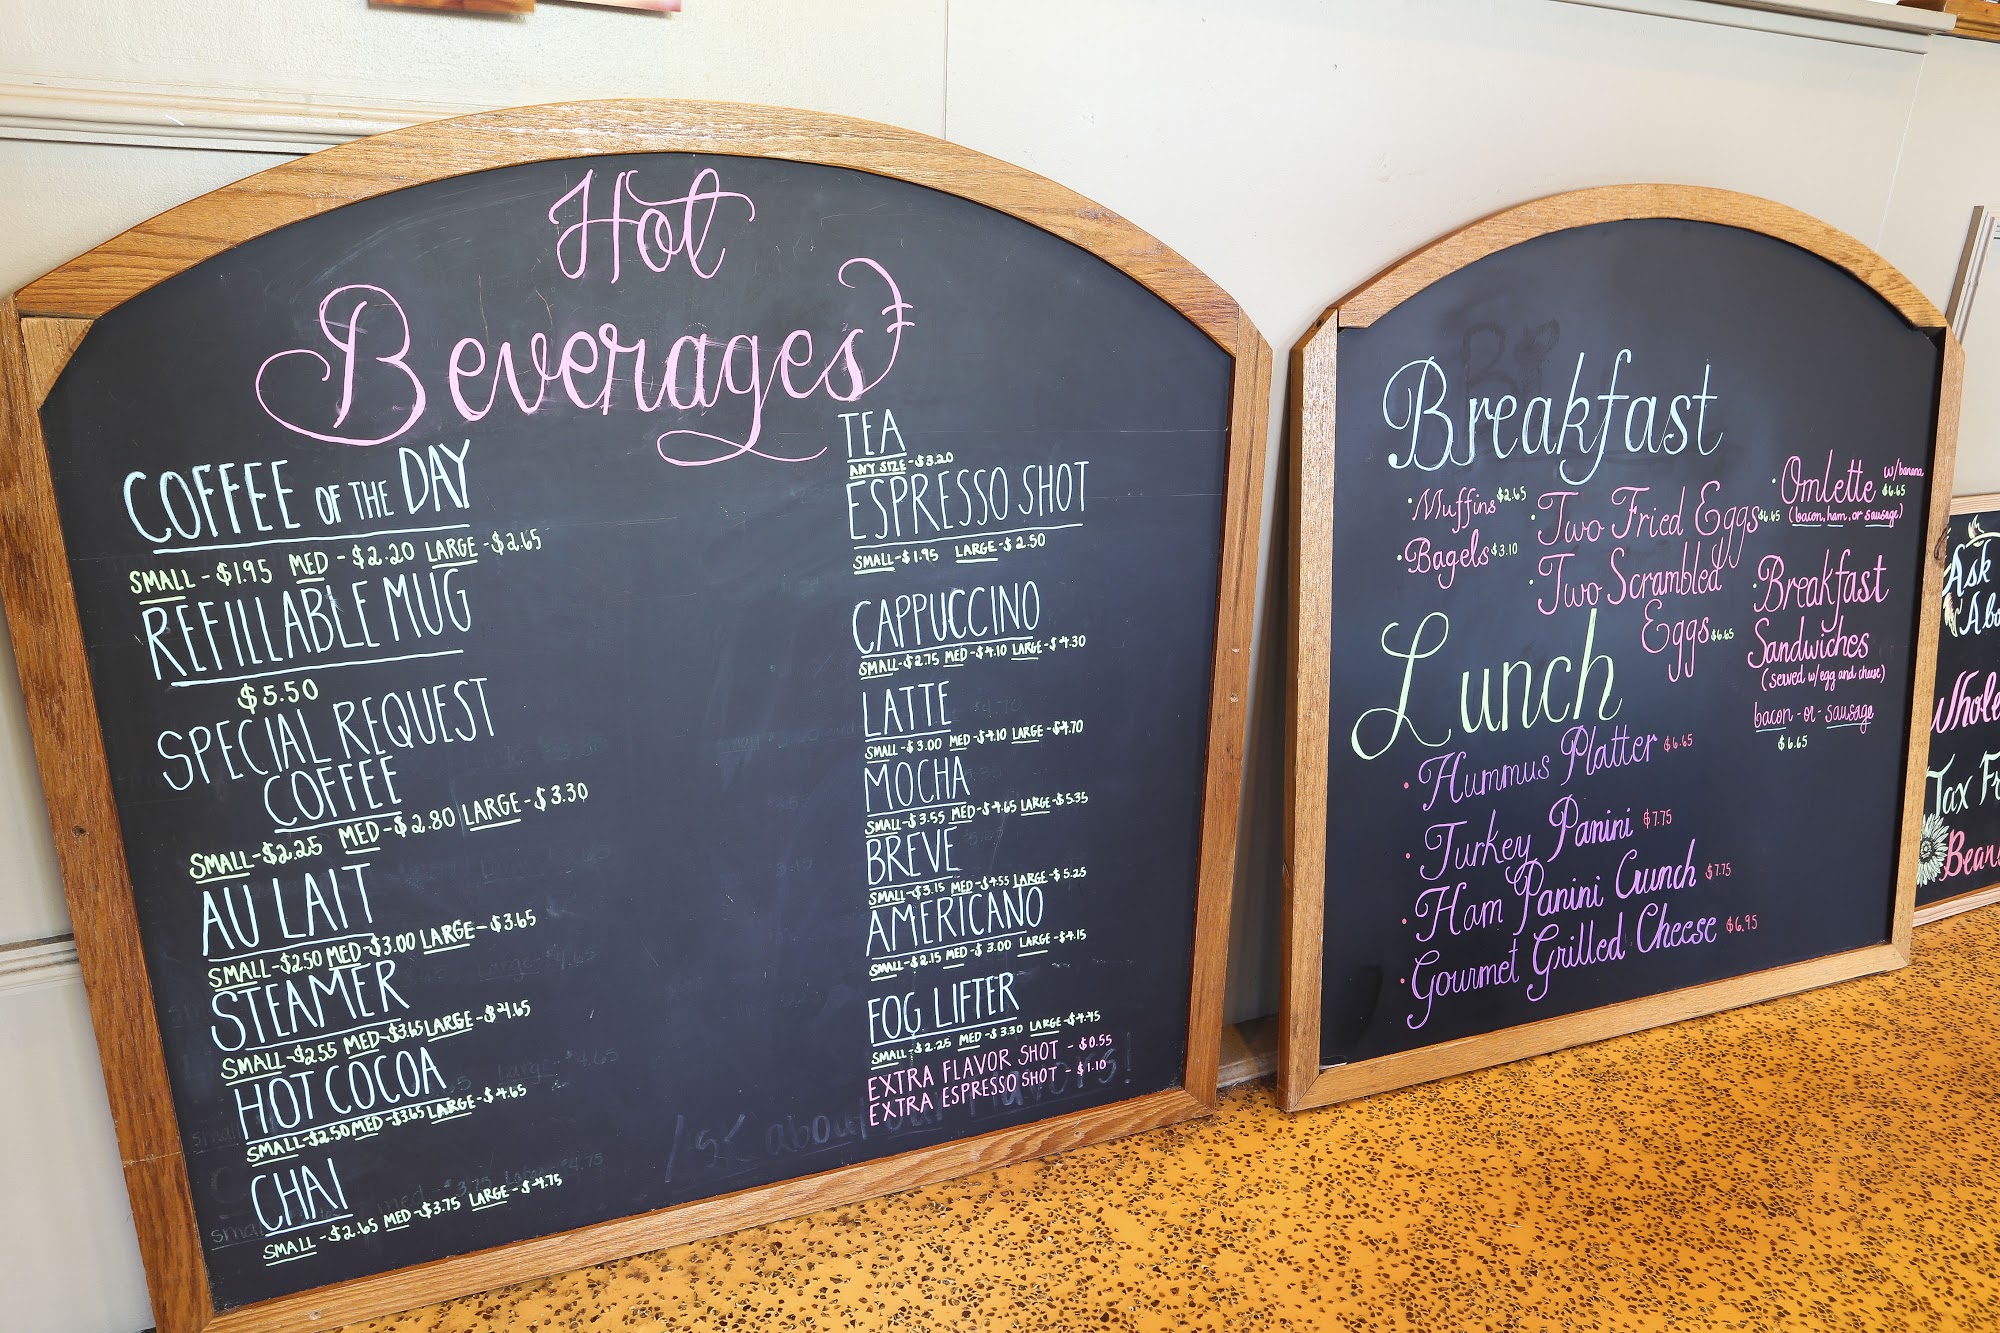 Hot
Beverages
COFFEE OF THE DAY
SMALL - $1.95 MED - $2.20 LARGE - $2.65
REFILLABLE MUG
$5.50
SPECIAL REQUEST
COFFEE
SMALL - $2.25 MED - $2.80 LARGE - $3.30
AU LAIT
SMALL - $2.50 MED - $3.00 LARGE - $3.65
STEAMER
SMALL - $2.55 MED - $3.65 LARGE - $4.65
HOT COCOA
SMALL - $2.50 MED - $3.65 LARGE - $4.65
CHAI
SMALL - $2.65 MED - $3.75 LARGE - $4.75
TEA
ANY SIZE - $3.20
ESPRESSO SHOT
SMALL - $1.95 LARGE - $2.50
CAPPUCCINO
SMALL - $2.75 MED - $4.10 LARGE - $4.30
LATTE
SMALL - $3.00 MED - $4.10 LARGE - $4.70
MOCHA
SMALL - $3.55 MED - $4.65 LARGE - $5.35
BREVE
SMALL - $3.15 MED - $4.55 LARGE - $5.25
AMERICANO
SMALL - $2.15 MED - $3.00 LARGE - $4.15
FOG LIFTER
SMALL - $2.25 MED - $3.30 LARGE - $4.45
EXTRA FLAVOR SHOT - $0.55
EXTRA ESPRESSO SHOT - $1.10
Breakfast
· Muffins $2.65
· Bagels $3.10
· Two Fried Eggs $6.65
· Two Scrambled
Eggs $6.65
· Omlette w/banana $6.65
(bacon, ham, or sausage)
· Breakfast
Sandwiches
(served w/egg and cheese)
bacon - or - sausage
$6.65
Lunch
· Hummus Platter $6.65
· Turkey Panini $7.75
· Ham Panini Crunch $7.75
· Gourmet Grilled Cheese $6.95
Ask
Abo
Whole
Tax Fr
Bean